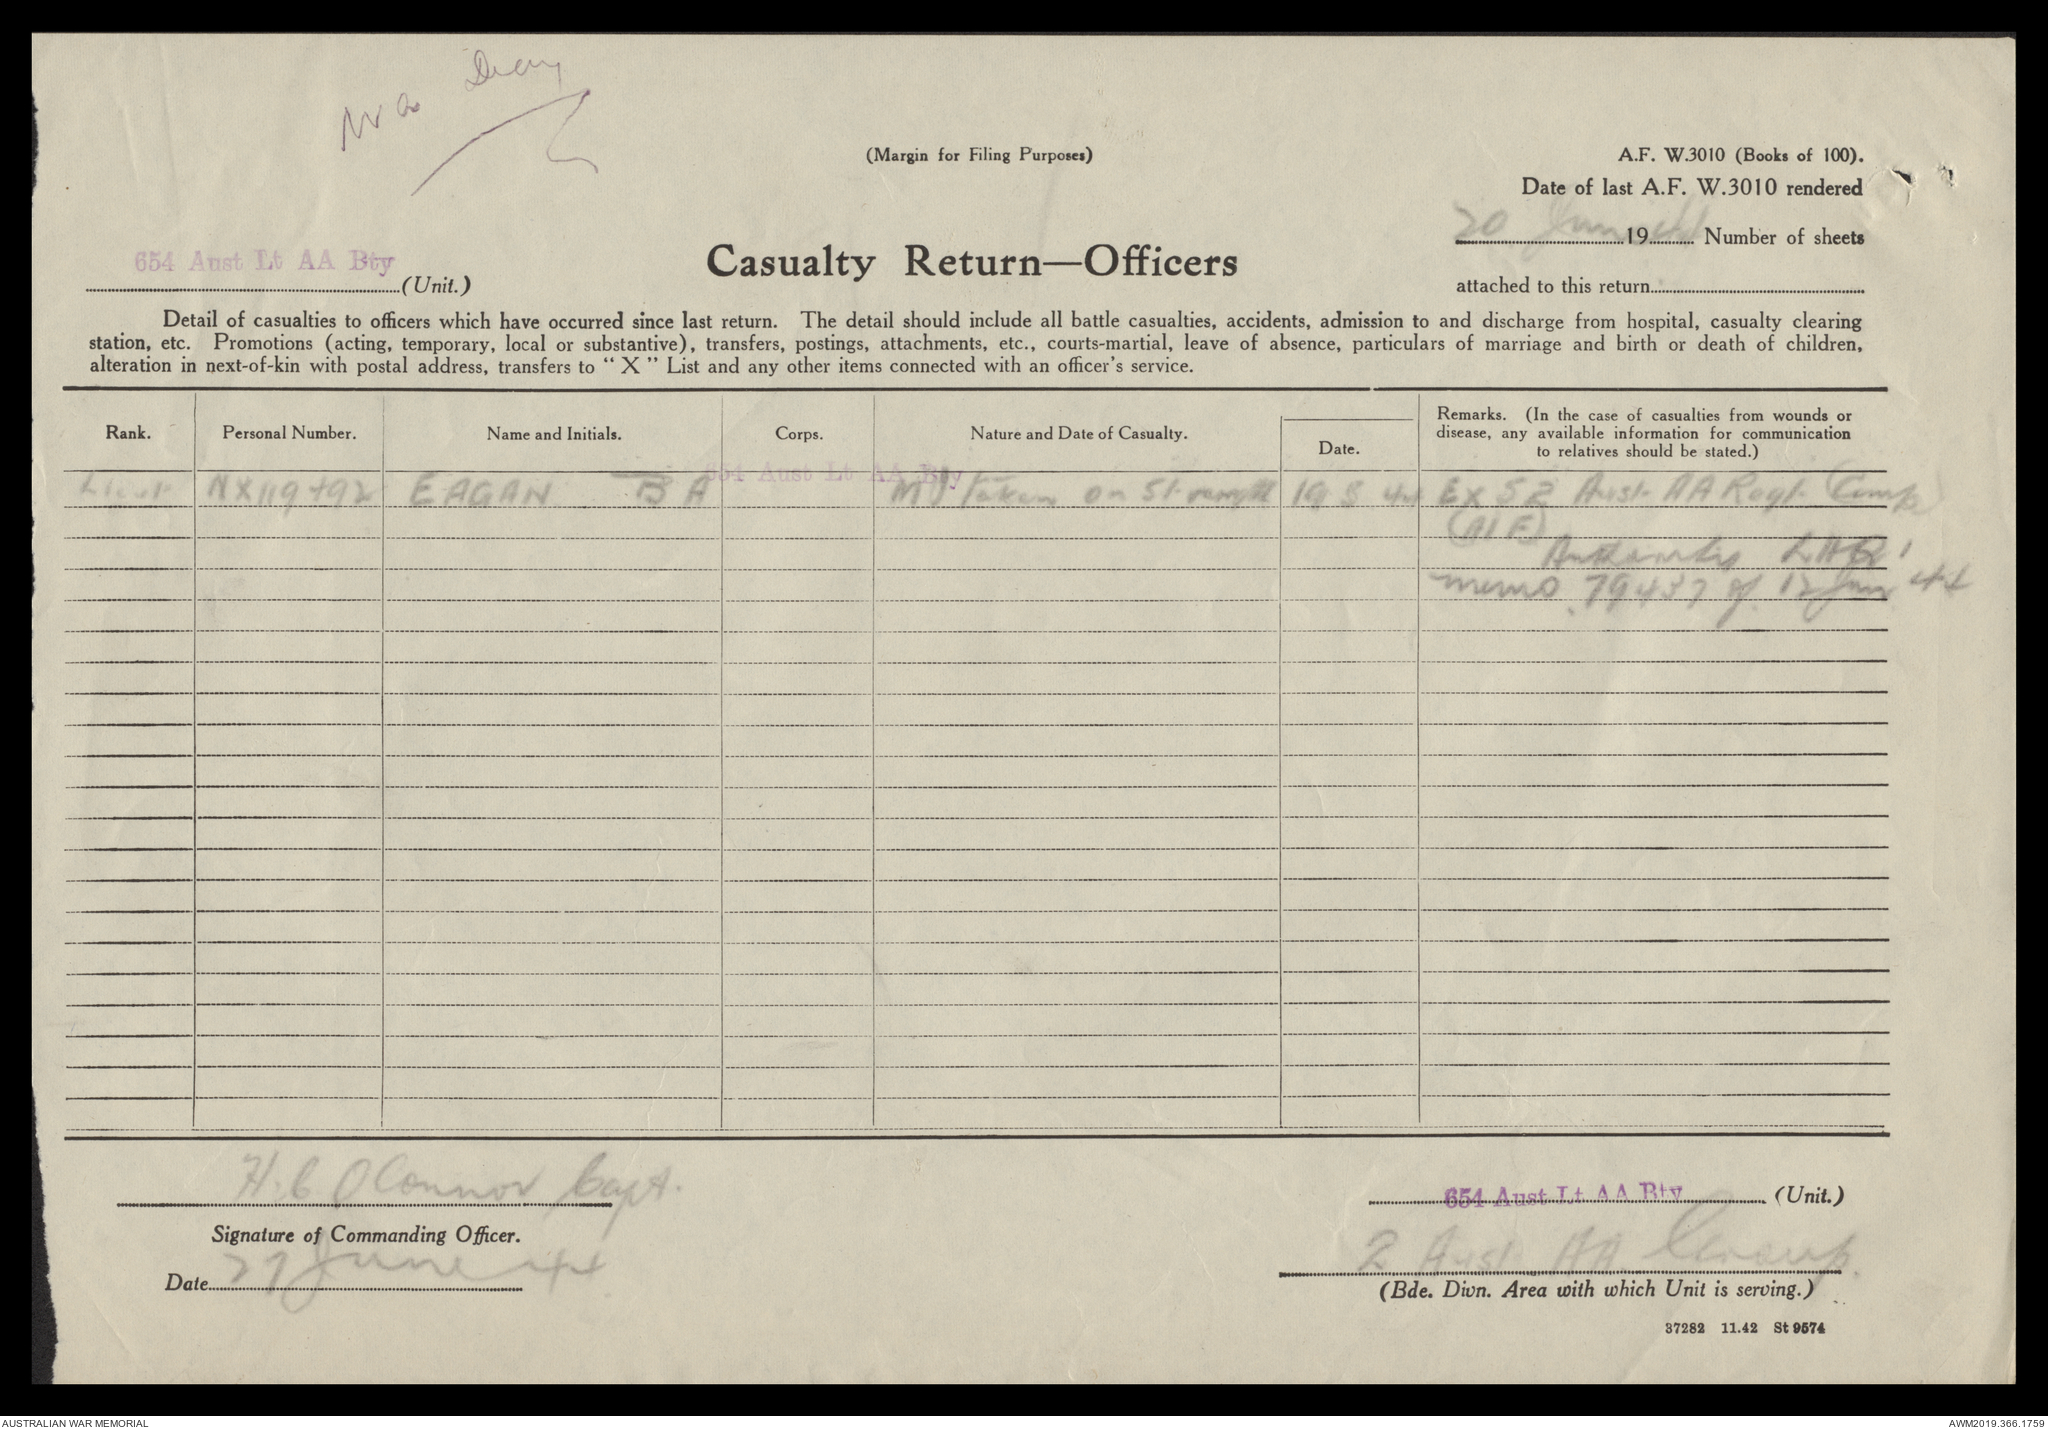 War Diary
(Margin for Filing Purposes)
A.F. W.3010 (Books of 100).
Date of last A.F. W.3010 rendered
20 June 1944 Number of sheets
attached to this return
654 Aust Lt AA Bty (Unit.)
Casualty Return—Officers
Detail of casualties to officers which have occurred since last return. The detail should include all battle casualties, accidents, admission to and discharge from hospital, casualty clearing
station, etc. Promotions (acting, temporary, local or substantive), transfers, postings, attachments, etc., courts-martial, leave of absence, particulars of marriage and birth or death of children,
alteration in next-of-kin with postal address, transfers to "X" List and any other items connected with an officer's service.
Rank. Personal Number. Name and Initials. Corps. Nature and Date of Casualty. Date. Remarks. (In the case of casualties from wounds or
disease, any available information for communication
to relatives should be stated.)
654 Aust Lt AA Bty
Lieut EAGAN B A taken on Strength Ex 52 Aust AA Regt (Comp)
(AIF)
Authority LHQ
memo 79437 of 12 Jun 44
H.C O'Connor Capt.
Signature of Commanding Officer.
Date 27 June 44
654 Aust Lt AA Bty (Unit.)
2 Aust AA Group.
(Bde. Divn. Area with which Unit is serving.)
37282 11.42 St 9574
AUSTRALIAN WAR MEMORIAL
AWM2019.366.1759